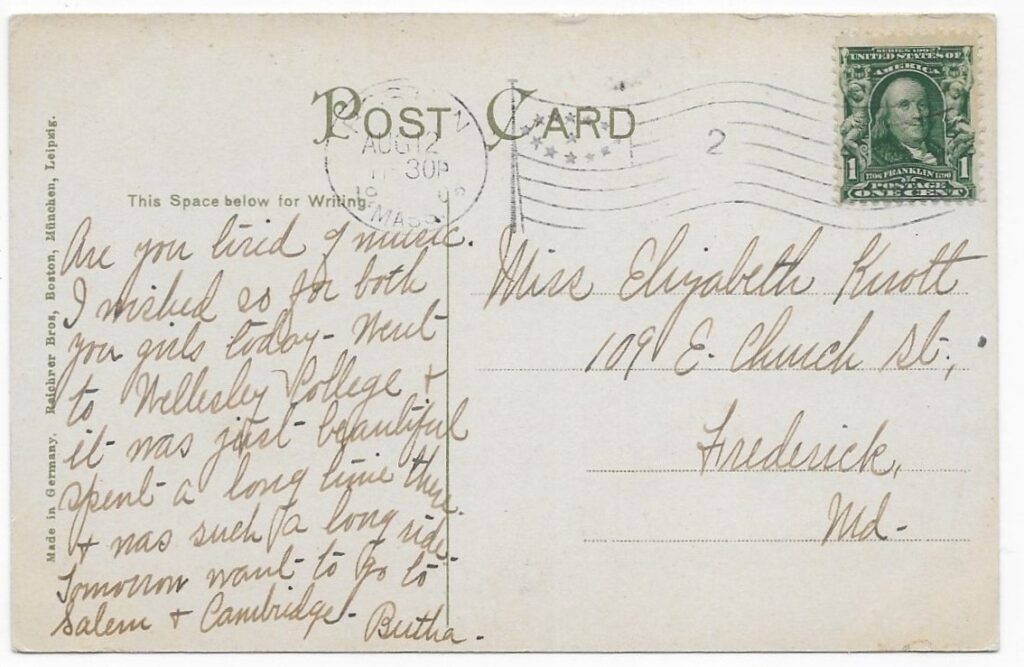 POST CARD
AUG 12
30P
MASS
2
SERIES 1902
UNITED STATES OF
AMERICA
1 1
1706 FRANKLIN 1790
POSTAGE
ONE CENT
This Space below for Writing.
Made in Germany. Reichner Bros, Boston, München, Leipzig.
Are you tired of music.
I wished so for both
you girls today - Went
to Wellesley College +
it was just beautiful
spent a long time there
+ was such a long ride.
Tomorrow want to go to
Salem + Cambridge -
Bertha -
Miss Elizabeth Knott
109 E. Church St.,
Frederick,
Md -